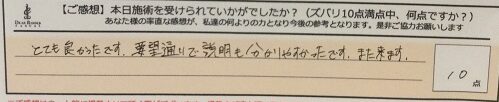 【ご感想】本日施術を受けられていかがでしたか？（ズバリ10点満点中、何点ですか？）
あなた様の率直な感想が、私達の何よりの力となり今後の参考となります。是非ご協力お願いします
とても良かったです。要望通りで説明も分かりやすかったです。また来ます。
10点